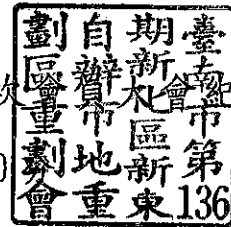 臺南市第136
期新區新東
自辦市地重
劃區重劃會
次 會紀